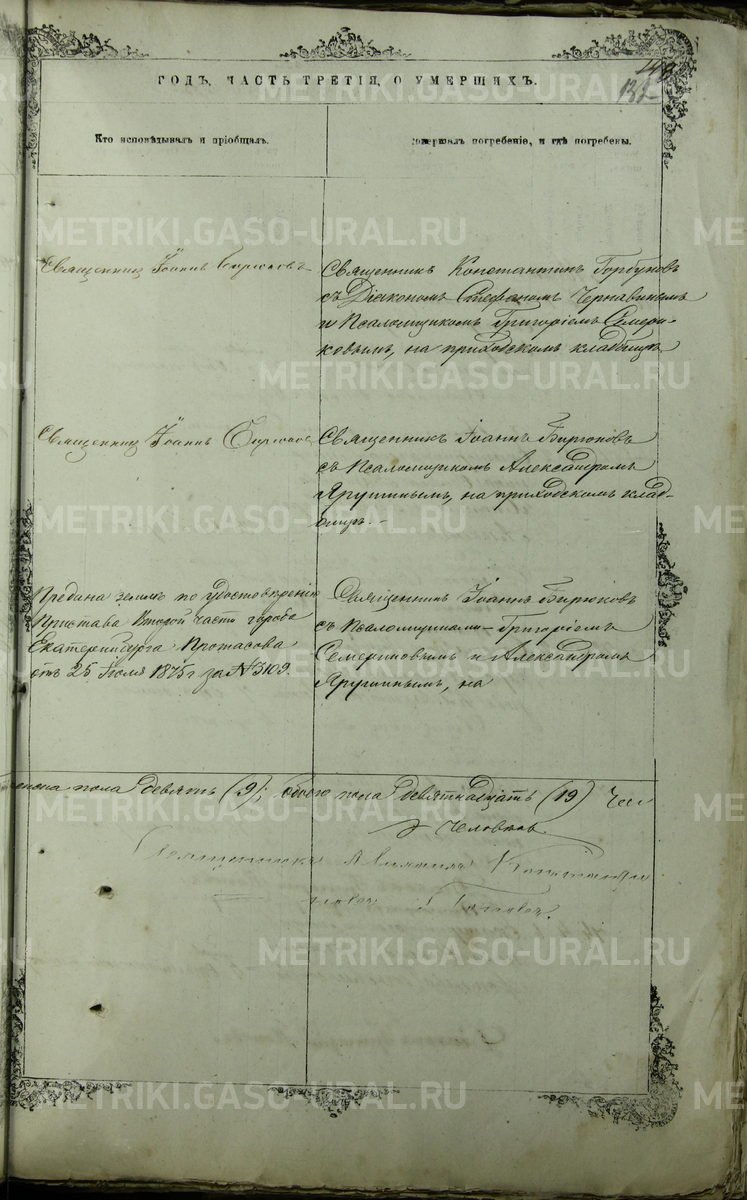 133
ГОДЪ, ЧАСТЬ ТРЕТІЯ, О УМЕРШИХЪ.
Кто исповѣдывалъ и пріобщалъ.
совершалъ погребеніе, и гдѣ погребены.
METRIKI.GASO-URAL.RU
Священникъ Іоаннъ Бирюковъ
Священникъ Константинъ Горбуновъ
съ Діакономъ Стефаномъ Чернавинымъ
и Псаломщикомъ Григоріемъ Семери-
ковымъ, на приходскомъ кладбищѣ.
Священникъ Іоаннъ Бирюковъ
Священникъ Іоаннъ Бирюковъ
съ Псаломщикомъ Александромъ
Ярушинымъ, на приходскомъ клад-
бищѣ.-
Предана землѣ по удостовѣренію
Пристава Второй части города
Екатеринбурга Протасова
отъ 25 Іюля 1875 г за № 3109.
Священникъ Іоаннъ Бирюковъ
съ Псаломщиками-Григоріемъ
Семериковымъ и Александромъ
Ярушинымъ, на
женска пола девять (9); обоего пола девятнадцать (19) Чел
Человѣкъ.